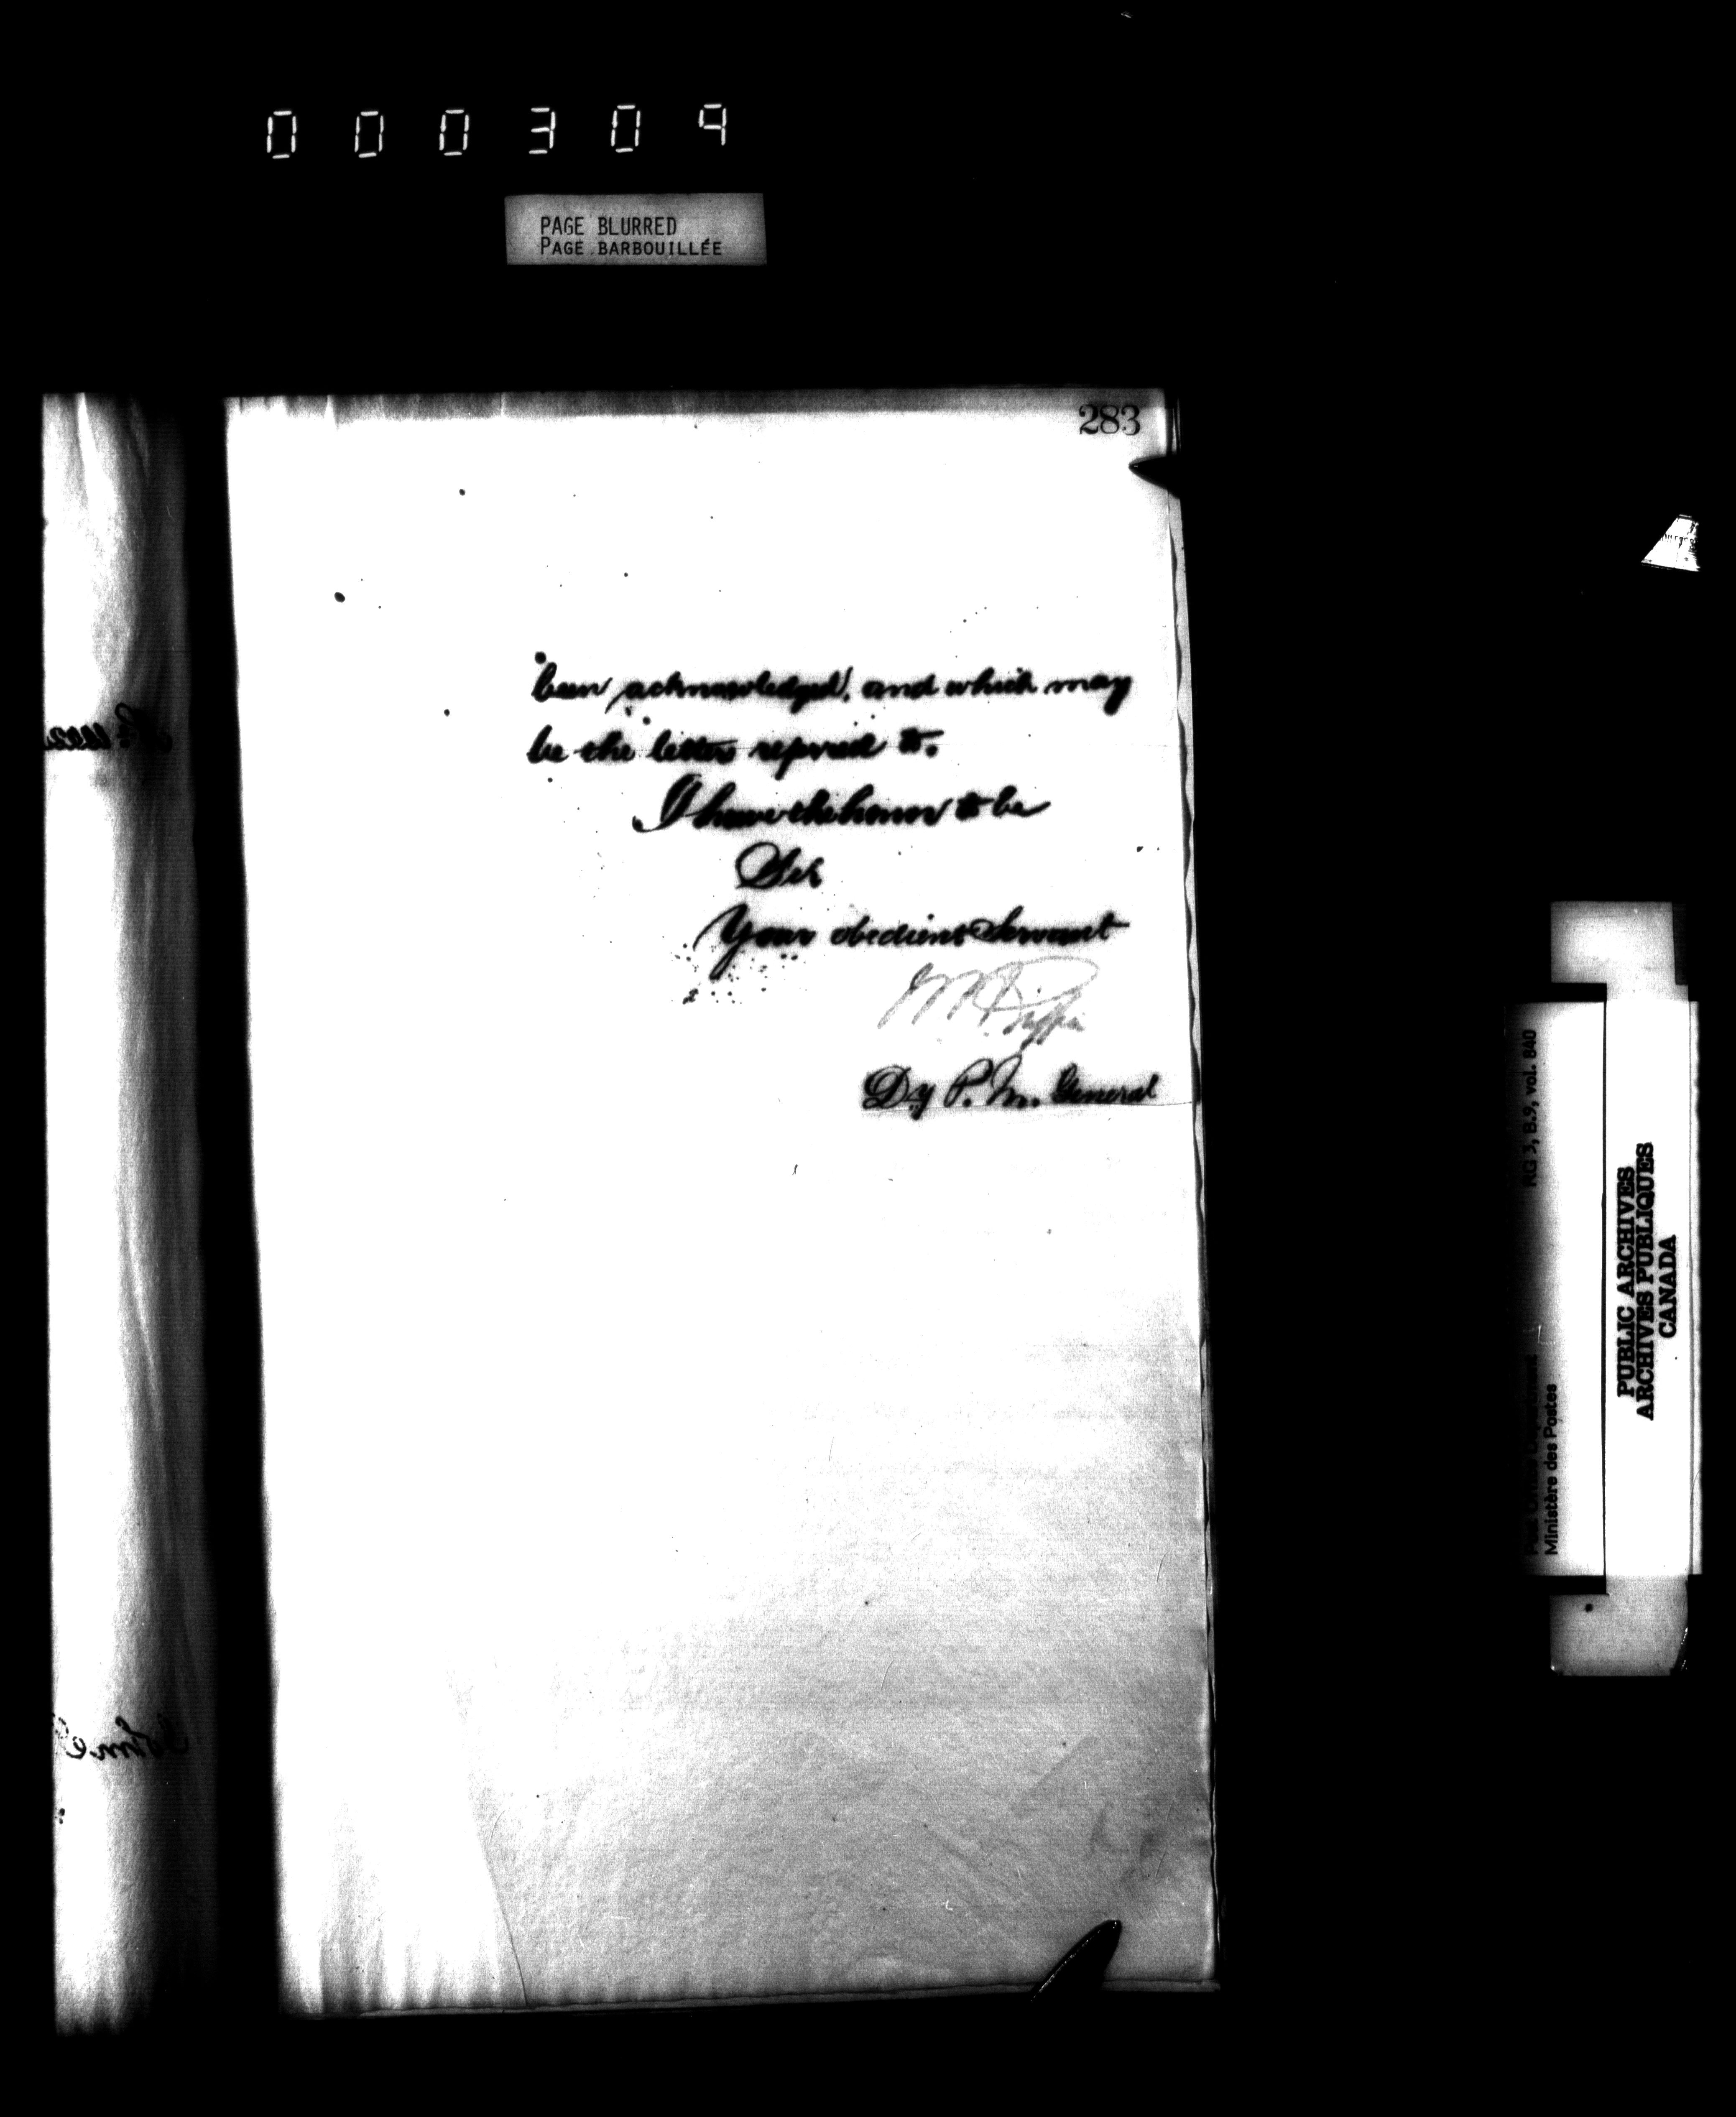 000309
PAGE BLURRED
PAGE BARBOUILLÉE
283
been acknowledged, and which may
be the letter referred to.
I have the honor to be
Sir
Your obedient Servant
Dy P. M. General
RG 3, B.9, vol. 840
Post Office Department
Ministère des Postes
PUBLIC ARCHIVES
ARCHIVES PUBLIQUES
CANADA